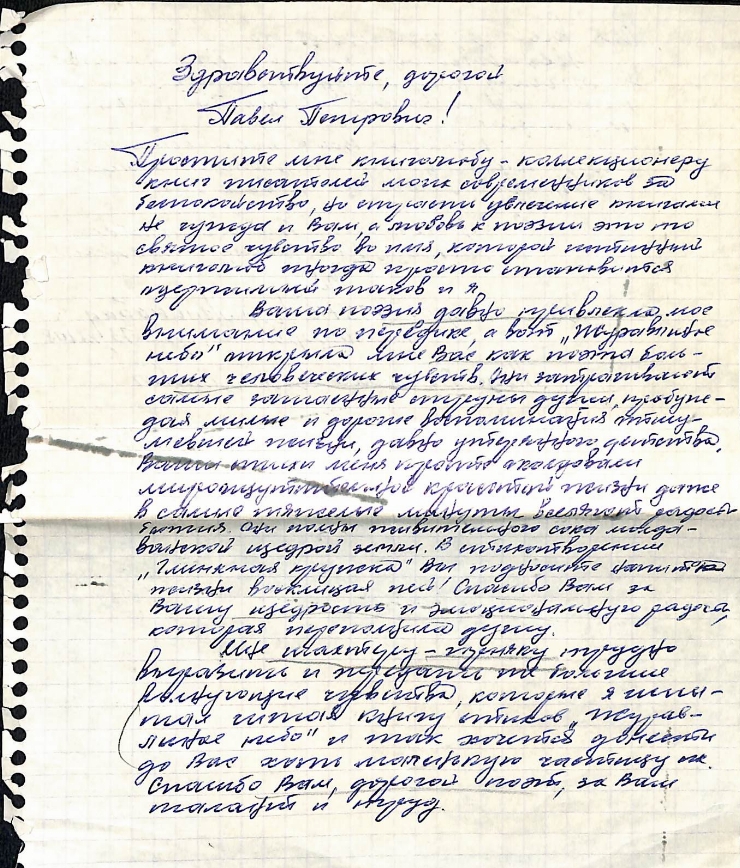 Здравствуйте, дорогой
Павел Петрович!
Простите мне книголюбу - коллекционеру
книг писателей моих современников за
беспокойство, но страсть увлечение книгами
не чужда и Вам, а любовь к поэзии это то
святое чувство во имя, которой истинный
книголюб иногда просто становится
нетерпимый таков и я.
Ваша поэзия давно привлекла мое
внимание по периодике, а вот „Журавлиное
небо" открыла мне Вас как поэта боль-
ших человеческих чувств. Они затрагивают
самые затаенные струны души, пробуж-
дая милые и дорогие воспоминания отшу-
мевшей жизни, давно утерянного детства.
Ваши стихи меня просто околдовали
красотой жизни даже
в самые тяжелые минуты вселяют радость
бытия. Они полны живительного сока молда-
ванской щедрой земли. В стихотворении
„Глиняная кружка" Вы подносите напиток
жизни восклицая пей! Спасибо Вам за
Вашу щедрость и эмоциональную радость,
которая переполнила душу.
Мне шахтеру - горняку трудно
выразить и передать те большие
волнующие чувства, которые я испы-
тал читая книгу стихов „Журав-
линое небо" и так хочется донести
до Вас хоть маленькую частицу их.
Спасибо Вам, дорогой поэт, за Ваш
талант и труд.